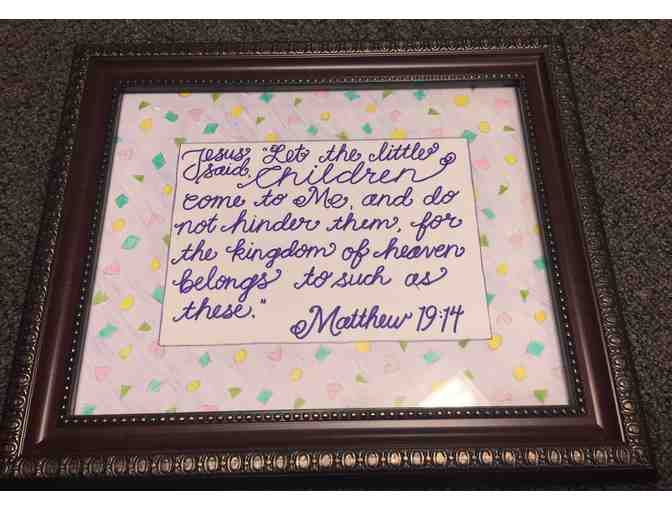 Jesus said, "Let the little
Children
come to Me, and do
not hinder them, for
the kingdom of heaven
belongs to such as
these."
Matthew 19:14